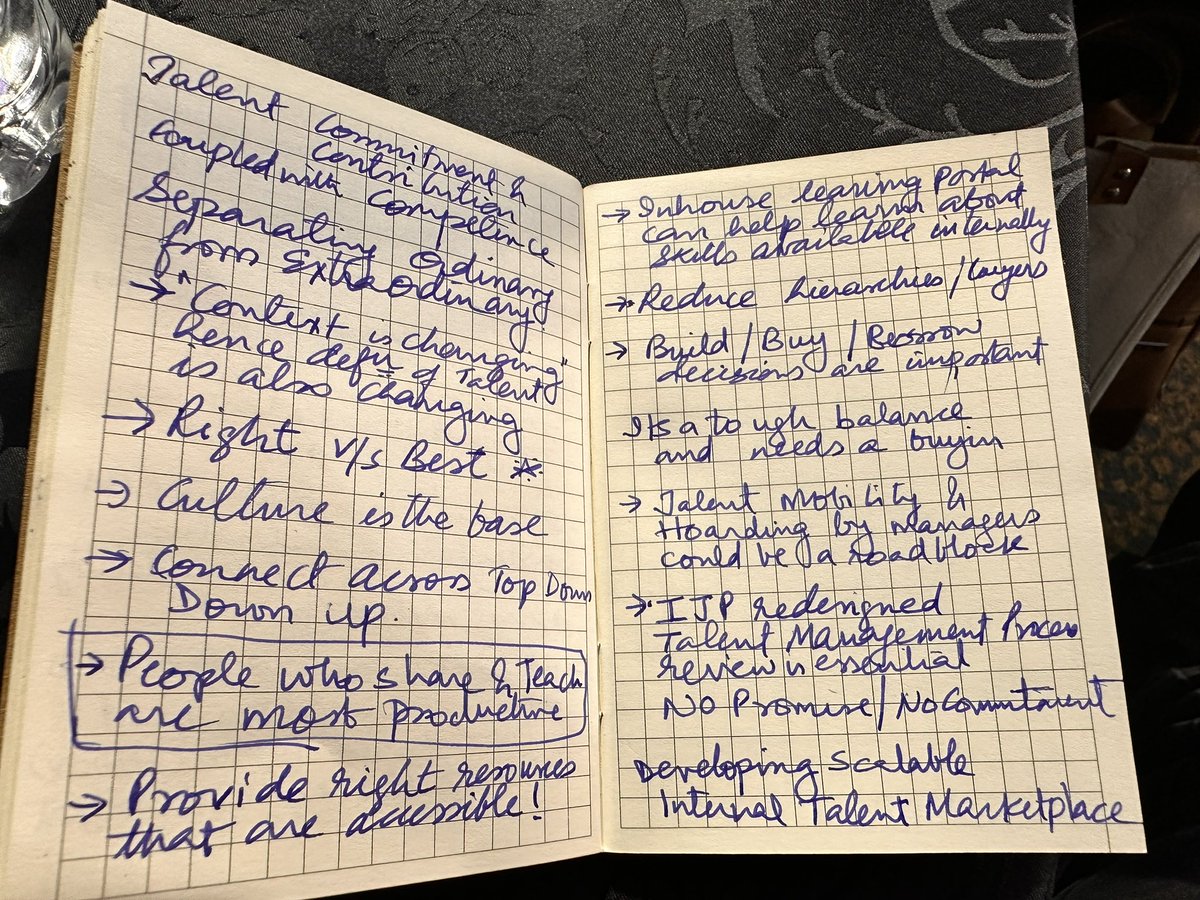 Talent Commitment &
Contribution
Coupled with Competence
Separating Ordinary
from Extraordinary
→ "Context is changing"
hence defn of Talent
is also changing
→ Right v/s Best *
→ Culture is the base
→ Connect across Top Down
Down up.
→ People who share & Teach
are most productive
→ Provide right resources
that are accessible!
→ Inhouse learning portal
can help learn about
skills available internally
→ Reduce hierarchies/Layers
→ Build/Buy/Borrow
decisions are important
Its a tough balance
and needs a buyin
→ Talent Mobility &
Hoarding by managers
could be a roadblock
→ IJP redesigned
Talent Management Process
review is essential
No Promise/No Commitment
Developing Scalable
Internal Talent Marketplace